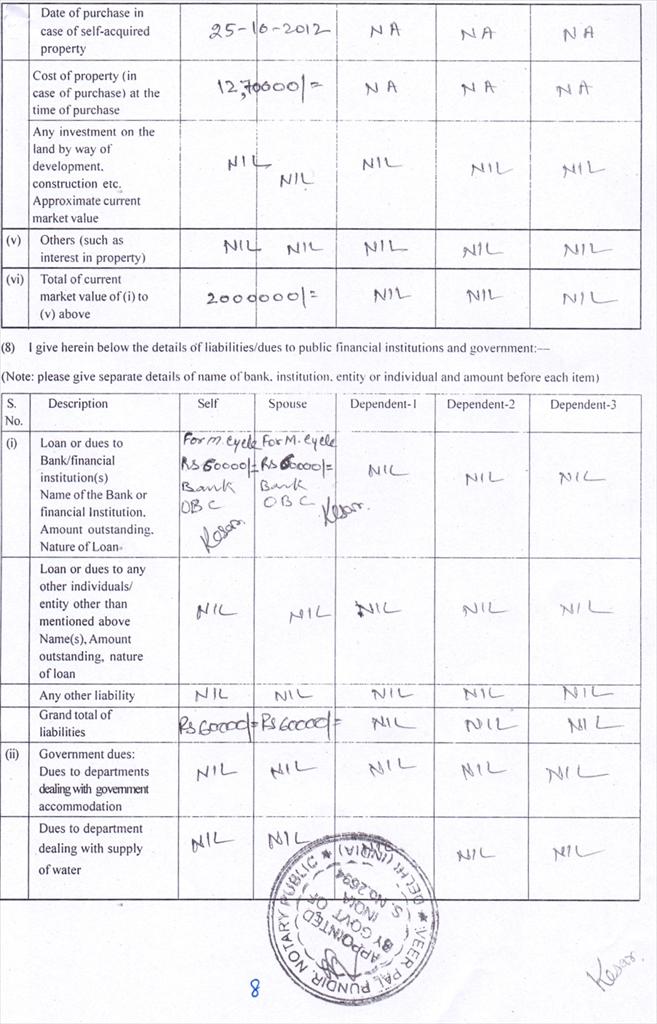 Date of purchase in
case of self-acquired
property
25-10-2012 NA NA NA
Cost of property (in
case of purchase) at the
time of purchase
12,70000/= NA NA NA
Any investment on the
land by way of
development.
construction etc.
Approximate current
market value
NIL NIL NIL NIL NIL
(v) Others (such as
interest in property)
NIL NIL NIL NIL NIL
(vi) Total of current
market value of (i) to
(v) above
2000000/= NIL NIL NIL
(8) I give herein below the details of liabilities/dues to public financial institutions and government:—
(Note: please give separate details of name of bank. institution. entity or individual and amount before each item)
S. No. Description Self Spouse Dependent-1 Dependent-2 Dependent-3
(i) Loan or dues to
Bank/financial
institution(s)
Name of the Bank or
financial Institution.
Amount outstanding.
Nature of Loan
For M. Cycle
Rs 60000/=
Bank
OBC
Kesar.
For M. Cycle
Rs 60000/=
Bank
OBC
Kesar.
NIL NIL NIL
Loan or dues to any
other individuals/
entity other than
mentioned above
Name(s), Amount
outstanding, nature
of loan
NIL NIL NIL NIL NIL
Any other liability NIL NIL NIL NIL NIL
Grand total of
liabilities
Rs 60000/= Rs 60000/= NIL NIL NIL
(ii) Government dues:
Dues to departments
dealing with government
accommodation
NIL NIL NIL NIL NIL
Dues to department
dealing with supply
of water
NIL NIL NIL NIL
★ VEER PAL PUNDIR, NOTARY PUBLIC ★ DELHI (INDIA)
APPOINTED
BY GOVT OF
INDIA
S. No. 2694
8
Kesar.